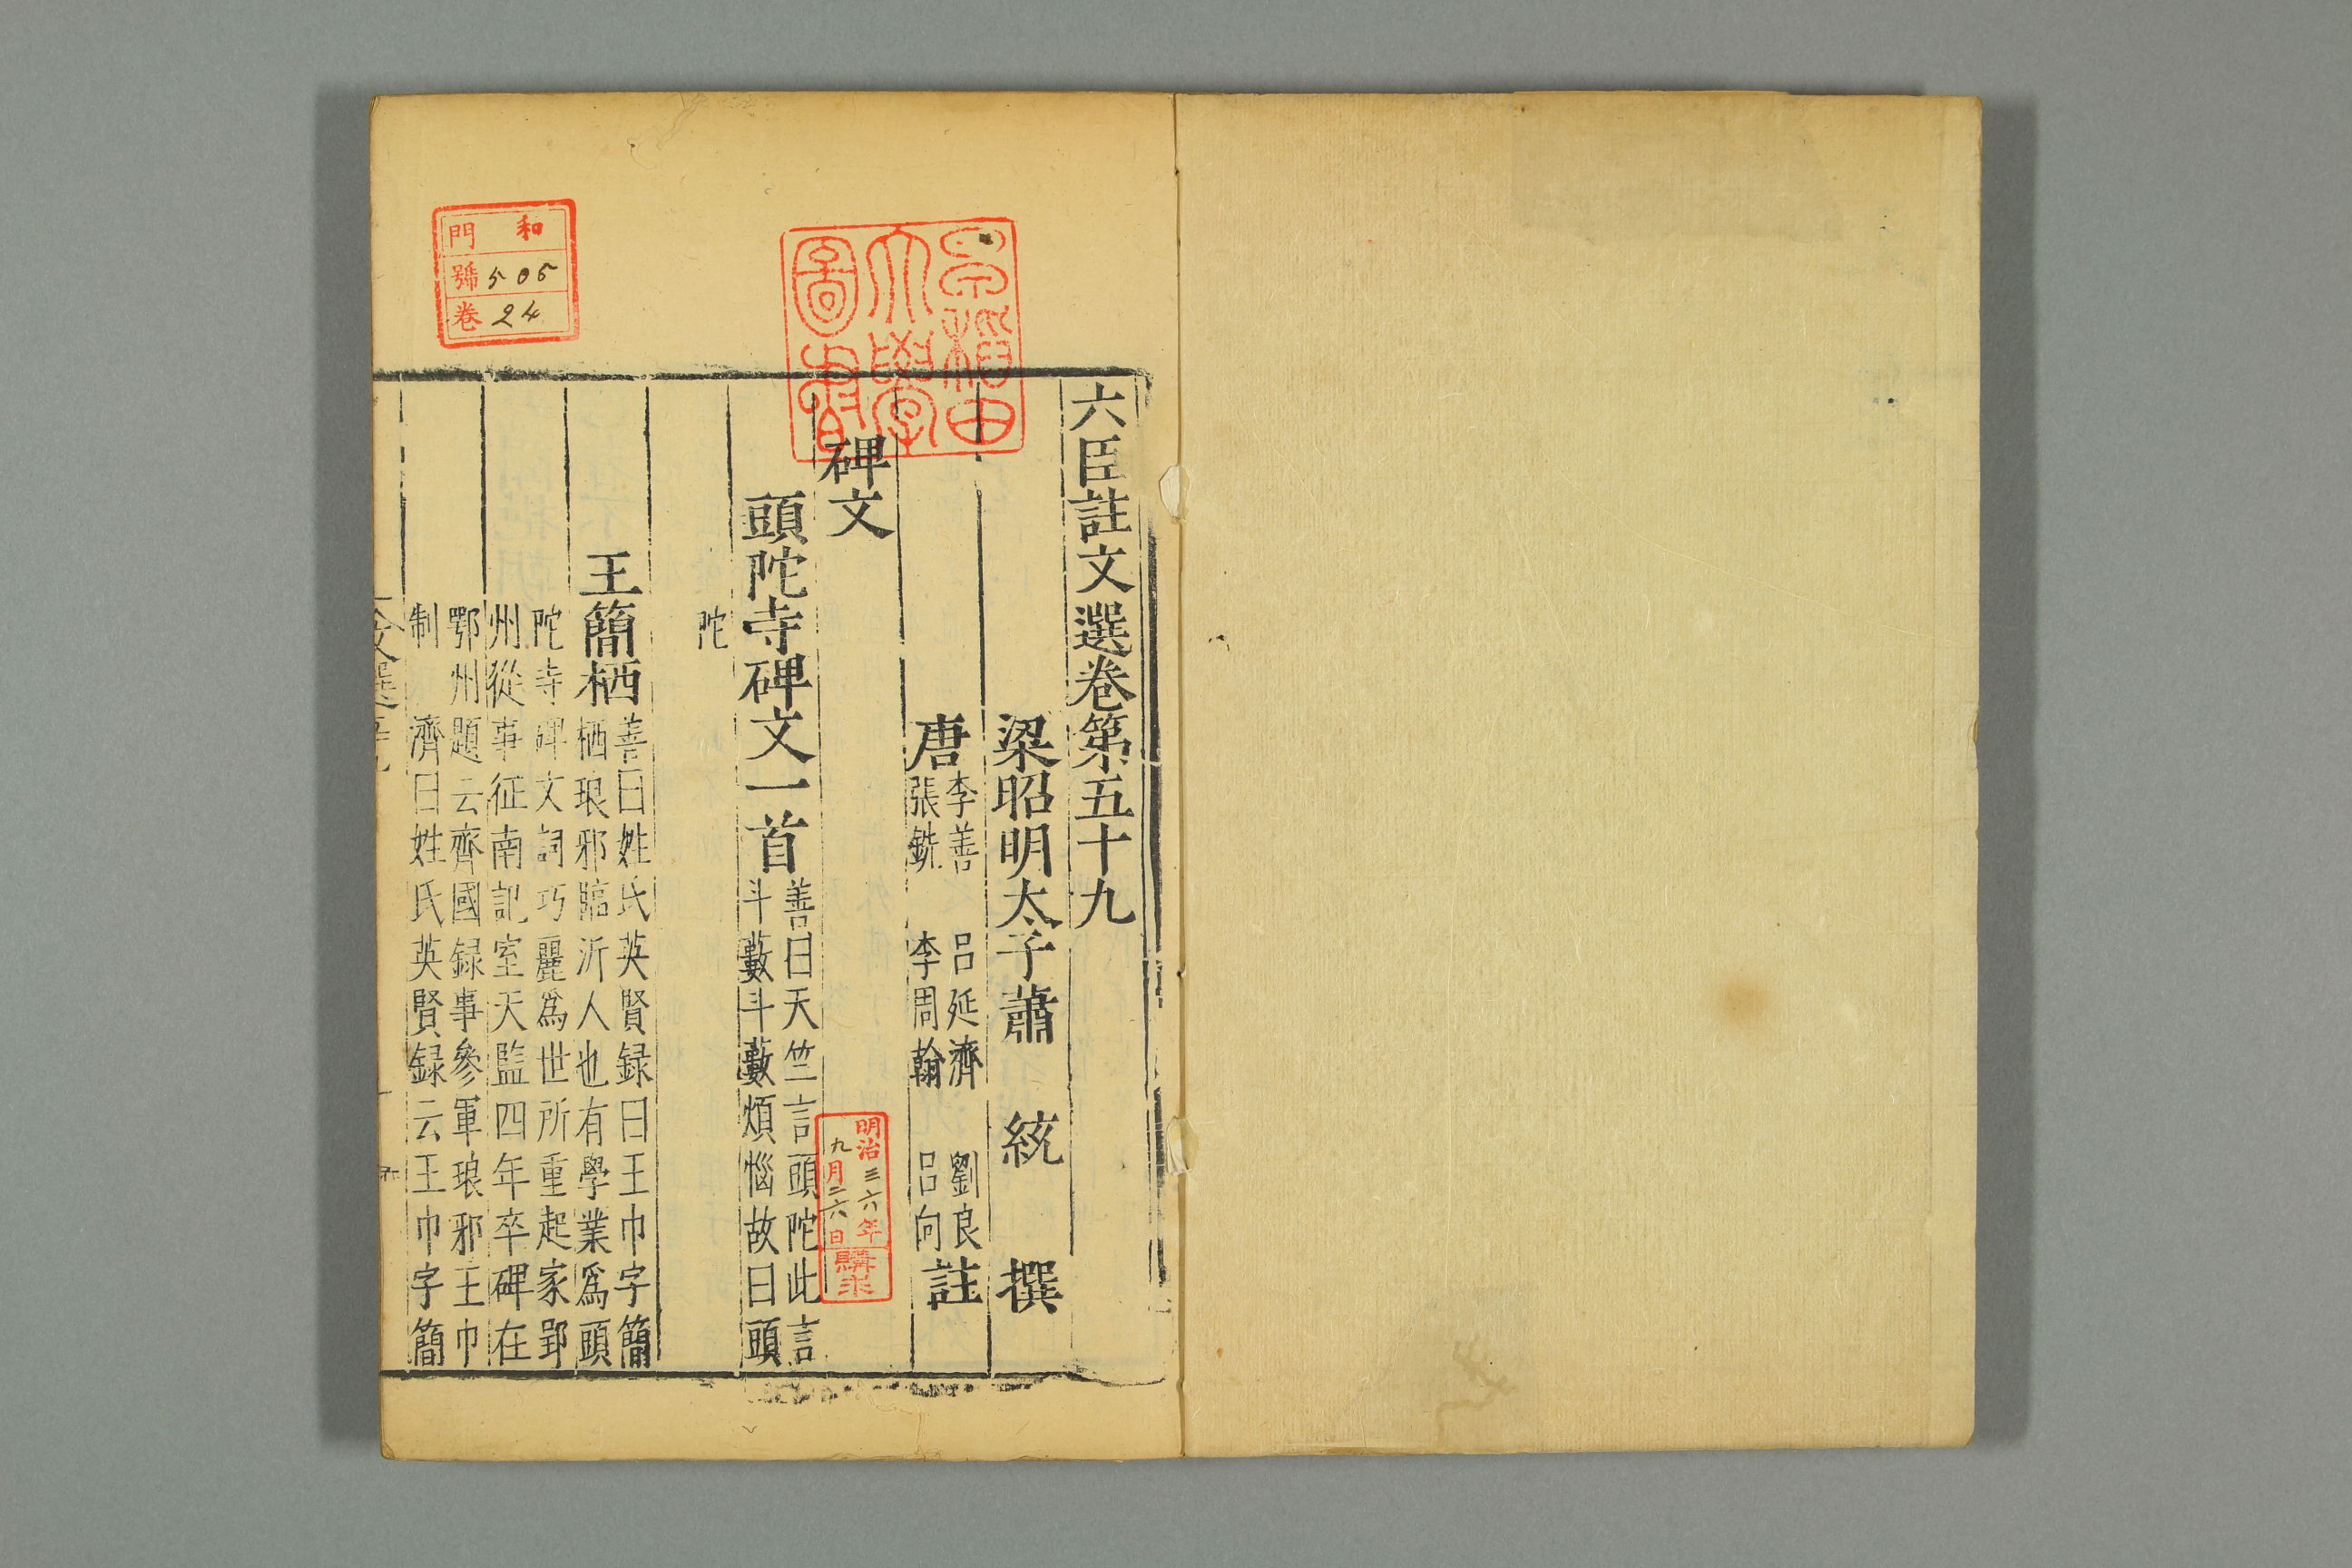 六臣註文選卷第五十九
梁昭明太子蕭統撰
唐
李善 呂延濟 劉良
張銑 李周翰 呂向
註
碑文
頭陀寺碑文一首
善曰天竺言頭陀此言
斗藪斗藪煩惱故曰頭
陀
王簡栖
善曰姓氏英賢録曰王巾字簡
栖琅邪臨沂人也有學業爲頭
陀寺碑文詞巧麗爲世所重起家郢
州從事征南記室天監四年卒碑在
鄂州題云齊國録事參軍琅邪王巾
制 濟曰姓氏英賢録云王巾字簡
早稻田
大學
圖書
明治三六年
九月二六日
購求
和門
號505
卷24